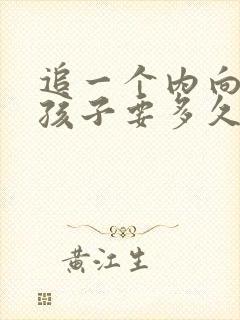 追一个内向
孩子要多久
黄江生